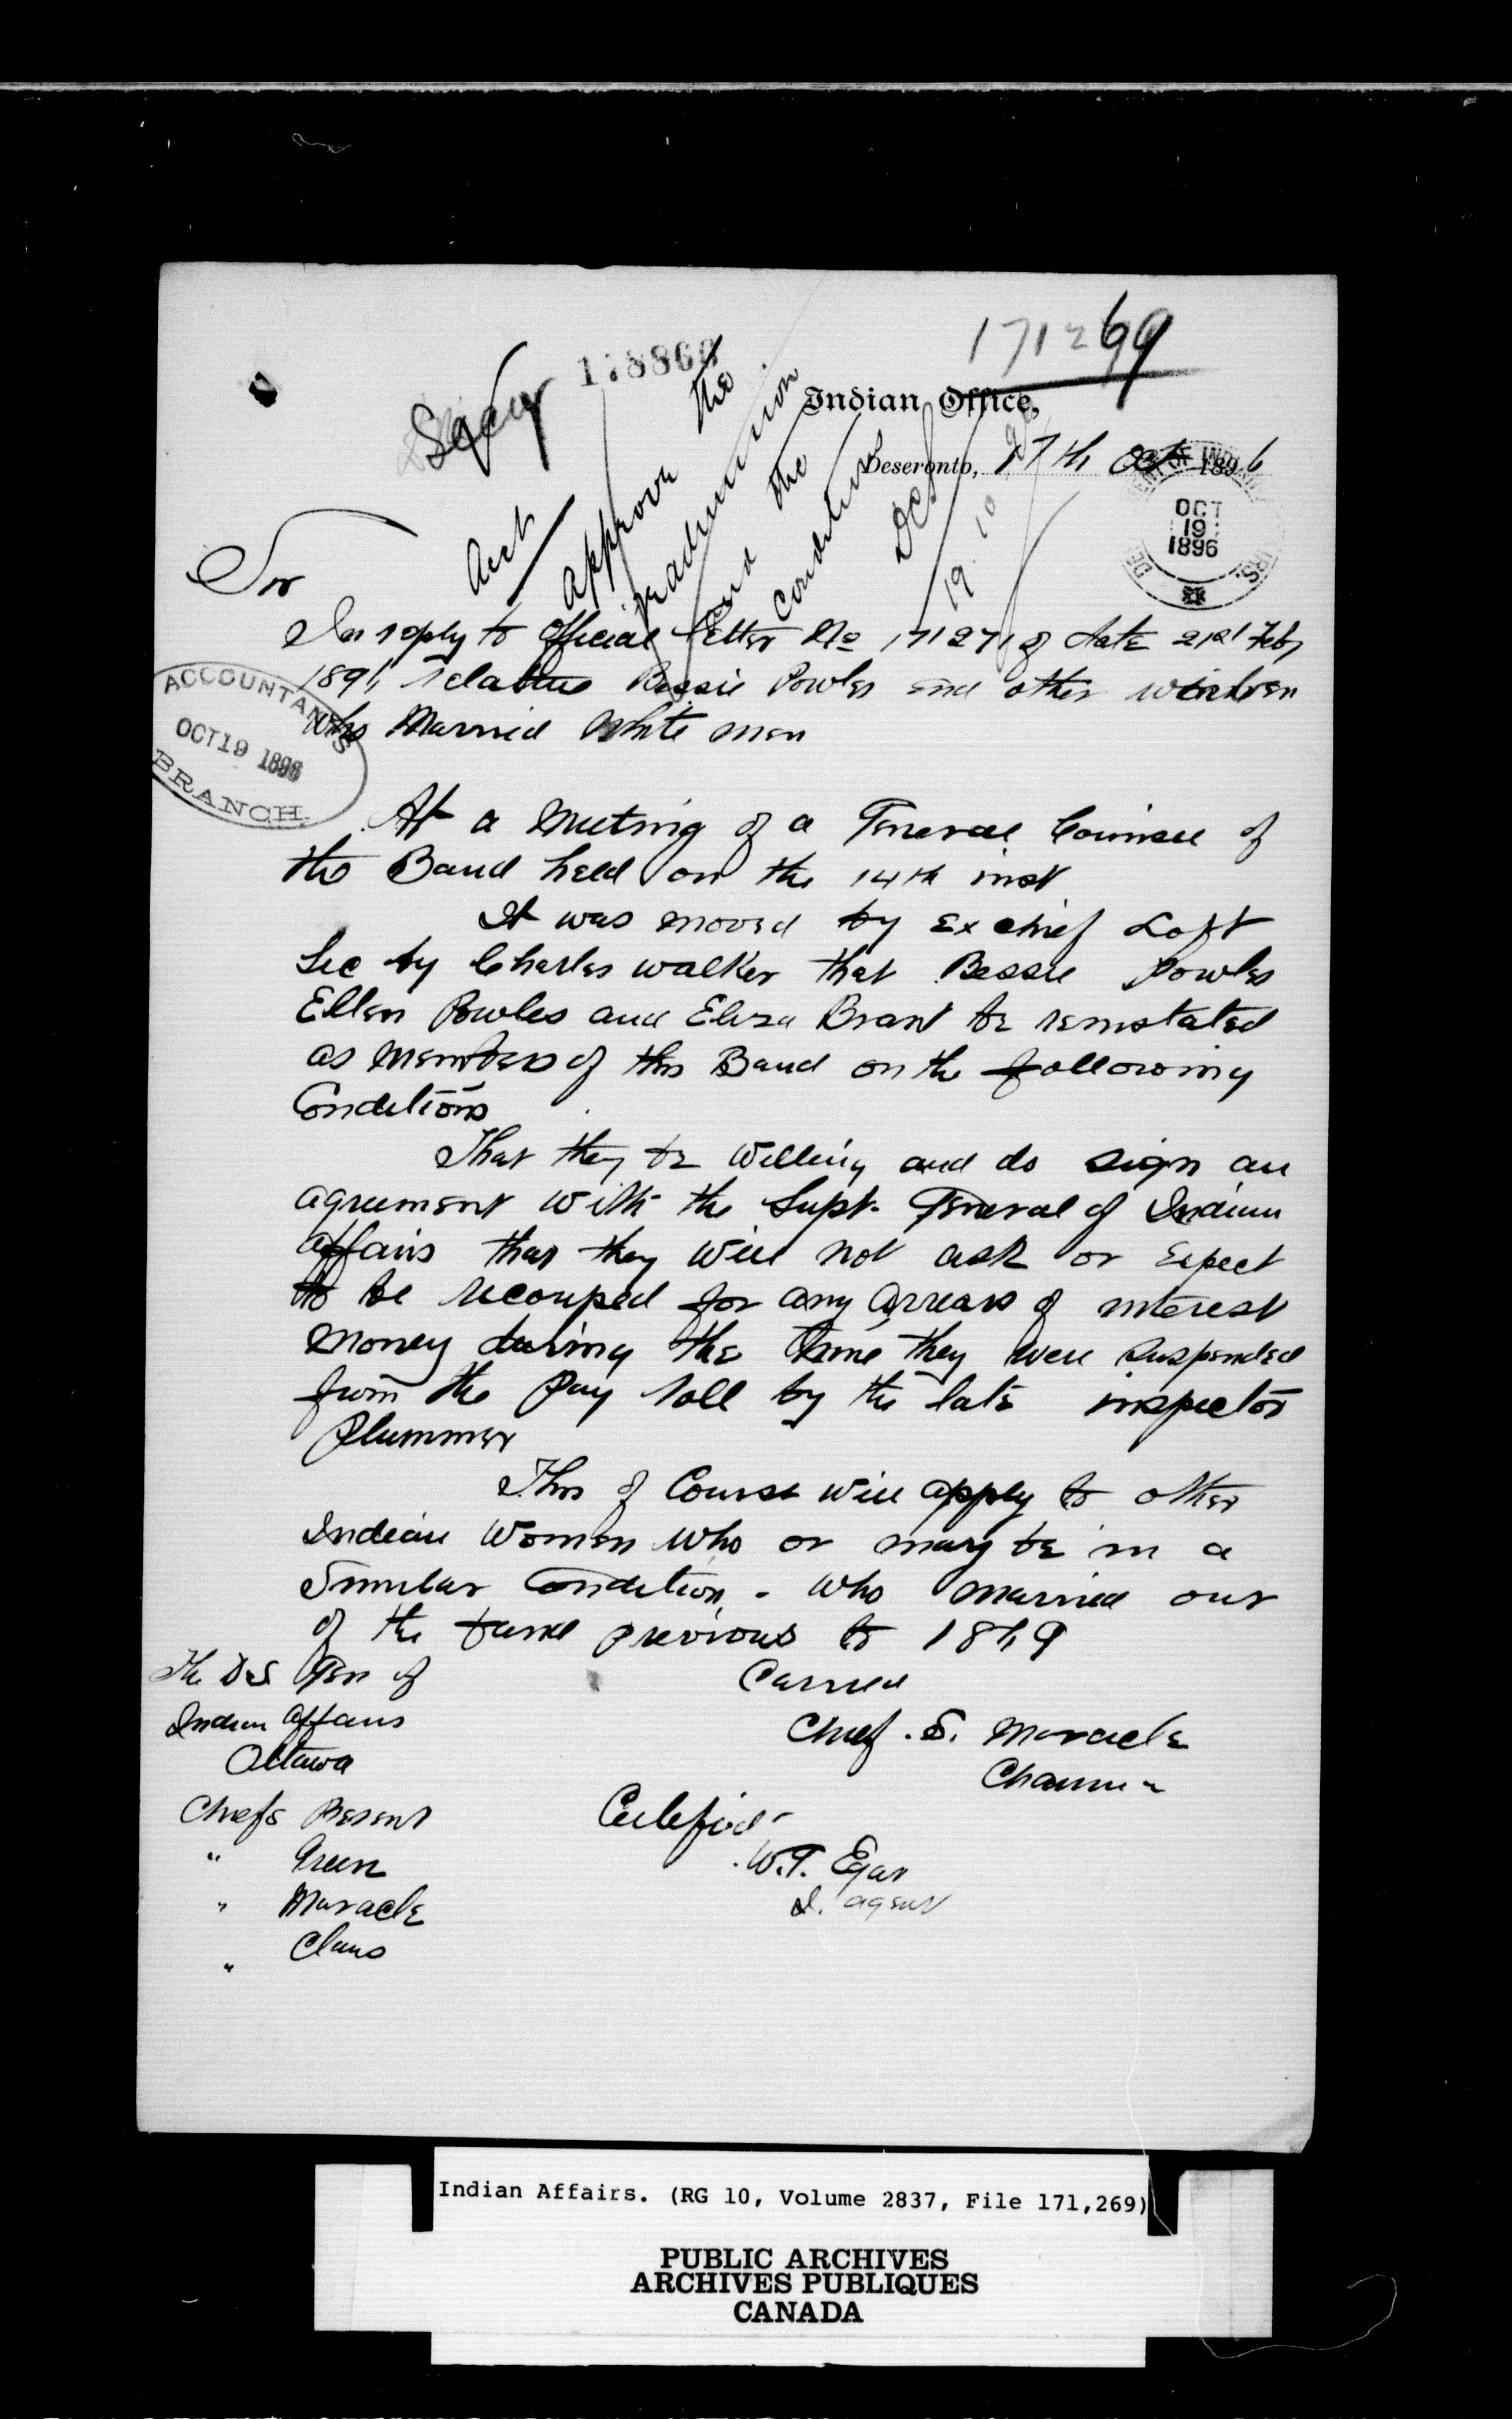 171269
178860
Secy
Indian Office,
Deseronto, 17th Oct 1896
OCT
19
1896
Acct
Approve the
readmission
and the
Conditions
19. 10. 96
Sir
In reply to official Letter No 171271 of date 21st Feby
1896 relative Bessie Powles and other women
who Married White men
ACCOUNTANT'S
OCT 19 1896
BRANCH.
At a Meeting of a General Council of
the Band held on the 14th inst
It was moved by Ex chief Loft
Sec by Charles Walker that Bessie Powles
Ellen Powles and Eliza Brant be reinstated
as Members of this Band on the following
Conditions
That they be Willing and do sign an
agreement with the Supt. General of Indian
Affairs that they will not ask or Expect
to be recouped for any Arrears of interest
Money during the time they were Suspended
from the Pay roll by the late inspector
Plummer
This of Course will apply to other
Indian Women who or may be in a
Similar Condition - who married out
of the Band previous to 1869
The D.S. Gen of
Indian Affairs
Ottawa
Carried
Chief. S. Maracle
Chairman
Chiefs Present
" Green
" Maracle
" Claus
Certified
W.G. Egar
I. agent
Indian Affairs. (RG 10, Volume 2837, File 171,269)
PUBLIC ARCHIVES
ARCHIVES PUBLIQUES
CANADA